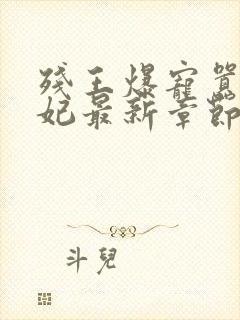 殘王爆寵囂
妃最新章節
斗兒